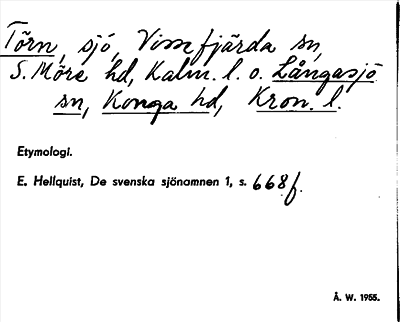 Törn, sjö, Vissefjärda sn,
S. Möre hd, Kalm. l. o. Långasjö
sn, Konga hd, Kron. l.
Etymologi.
E. Hellquist, De svenska sjönamnen 1, s. 668 f.
Å. W. 1955.